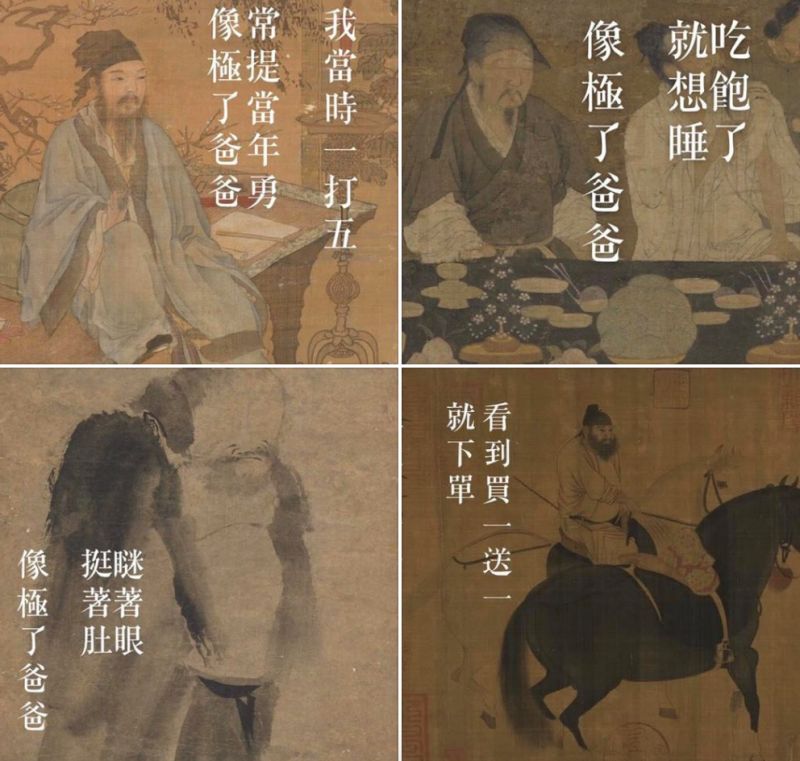 我當時一打五
常提當年勇
像極了爸爸
吃飽了
就想睡
像極了爸爸
瞇著眼
挺著肚
像極了爸爸
看到買一送一
就下單